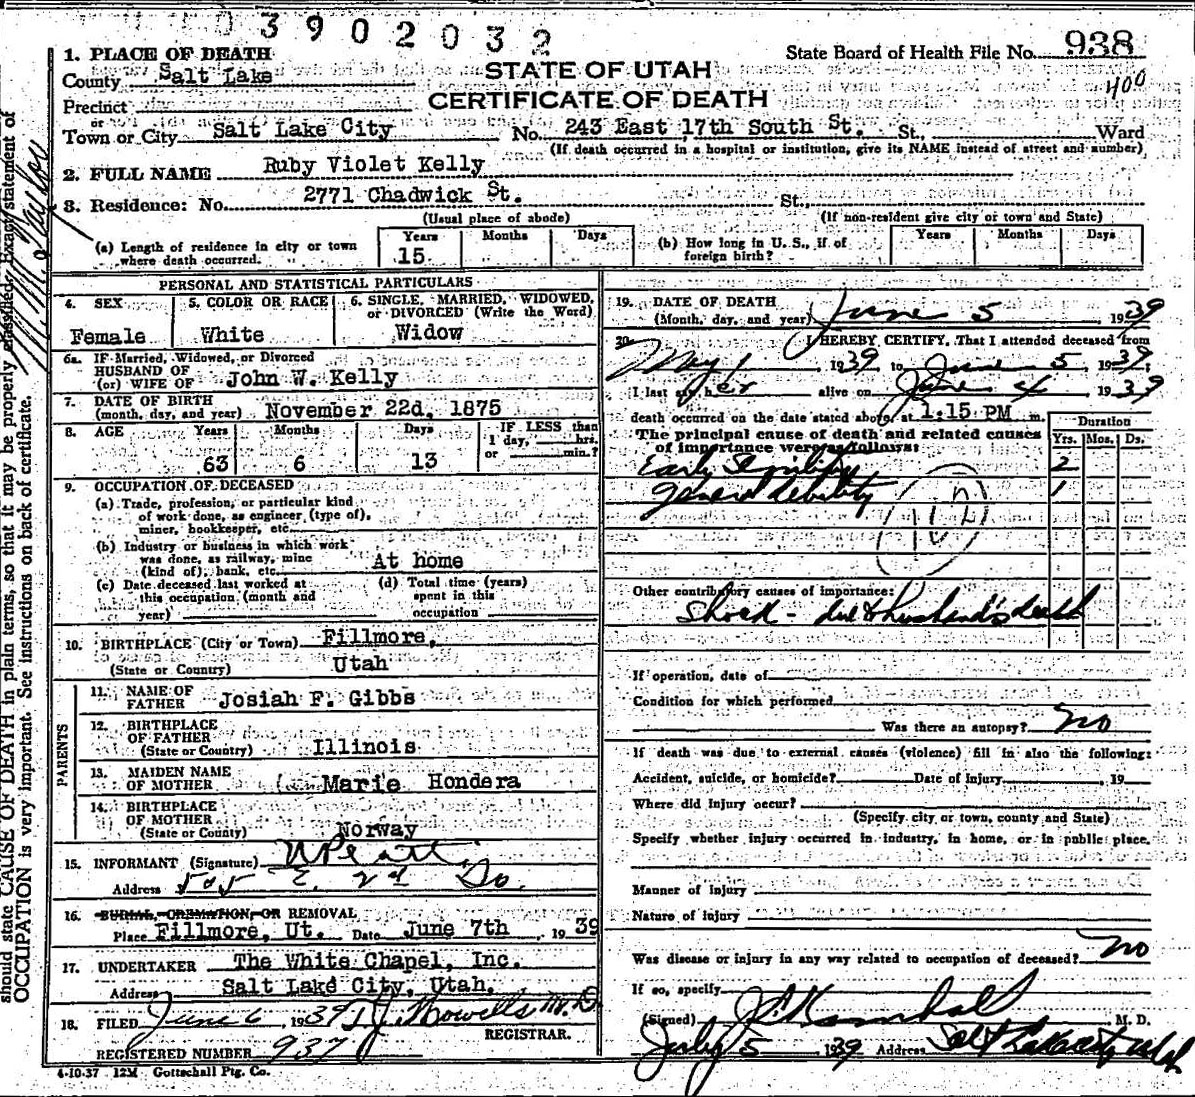 0 3 9 0 2 0 3 2
State Board of Health File No. 938
400
STATE OF UTAH
CERTIFICATE OF DEATH
1. PLACE OF DEATH
County Salt Lake
Precinct
or
Town or City Salt Lake City No. 243 East 17th South St. St., Ward
(If death occurred in a hospital or institution, give its NAME instead of street and number)
2. FULL NAME Ruby Violet Kelly
3. Residence: No. 2771 Chadwick St. St.,
(Usual place of abode) (If non-resident give city or town and State)
(a) Length of residence in city or town where death occurred. Years 15 Months Days
(b) How long in U. S., if of foreign birth? Years Months Days
PERSONAL AND STATISTICAL PARTICULARS
4. SEX Female
5. COLOR OR RACE White
6. SINGLE, MARRIED, WIDOWED, or DIVORCED (Write the Word) Widow
6a. IF Married, Widowed, or Divorced
HUSBAND OF
(or) WIFE OF John W. Kelly
7. DATE OF BIRTH
(month, day, and year) November 22d, 1875
8. AGE Years 63 Months 6 Days 13
IF LESS than 1 day, hrs. or min.?
9. OCCUPATION OF DECEASED
(a) Trade, profession, or particular kind
of work done, as engineer (type of),
miner, bookkeeper, etc.
(b) Industry or business in which work
was done, as railway, mine
(kind of), bank, etc. At home
(c) Date deceased last worked at
this occupation (month and
year)
(d) Total time (years)
spent in this
occupation
10. BIRTHPLACE (City or Town) Fillmore,
(State or Country) Utah
PARENTS
11. NAME OF FATHER Josiah F. Gibbs
12. BIRTHPLACE OF FATHER
(State or Country) Illinois
13. MAIDEN NAME OF MOTHER Marie Hondera
14. BIRTHPLACE OF MOTHER
(State or Country) Norway
15. INFORMANT (Signature)
Address 505 E. 2d So.
16. BURIAL, CREMATION, OR REMOVAL
Place Fillmore, Ut. Date June 7th, 1939
17. UNDERTAKER The White Chapel, Inc.
Address Salt Lake City, Utah.
18. FILED June 6 1939 M.D.
REGISTRAR.
REGISTERED NUMBER 937
4-10-37 12M Gottschall Ptg. Co.
19. DATE OF DEATH
(Month, day, and year) June 5 1939
20. I HEREBY CERTIFY, That I attended deceased from
May 1, 1939 to June 5, 1939,
I last saw her alive on June 4 1939
death occurred on the date stated above, at 1:15 PM m.
The principal cause of death and related causes
of importance were as follows:
Duration
Yrs. Mos. Ds.
Early Senility 2
general debility 1
Other contributory causes of importance:
Shock - due to husband's death
If operation, date of
Condition for which performed
Was there an autopsy? no
If death was due to external causes (violence) fill in also the following:
Accident, suicide, or homicide? Date of Injury , 19
Where did injury occur?
(Specify city or town, county and State)
Specify whether injury occurred in industry, in home, or in public place.
Manner of injury
Nature of injury
Was disease or injury in any way related to occupation of deceased? no
If so, specify
(Signed) M. D.
July 5 1939 Address Salt Lake City Utah
should state CAUSE OF DEATH in plain terms, so that it may be properly classified. Exact statement of
OCCUPATION is very important. See instructions on back of certificate.